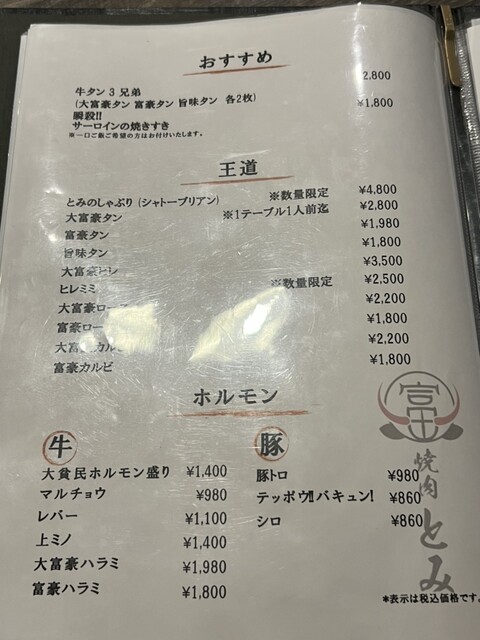 おすすめ
牛タン３兄弟 ¥2,800
(大富豪タン 富豪タン 旨味タン 各2枚)
瞬殺!!
サーロインの焼きすき ¥1,800
※一口ご飯ご希望の方はお付けいたします。
王道
とみのしゃぶり (シャトーブリアン) ※数量限定 ¥4,800
大富豪タン ※1テーブル1人前迄 ¥2,800
富豪タン ¥1,980
旨味タン ¥1,800
大富豪ヒレ ¥3,500
ヒレミミ ※数量限定 ¥2,500
大富豪ロース ¥2,200
富豪ロー ¥1,800
大富豪カルビ ¥2,200
富豪カルビ ¥1,800
ホルモン
牛
大貧民ホルモン盛り ¥1,400
マルチョウ ¥980
レバー ¥1,100
上ミノ ¥1,400
大富豪ハラミ ¥1,980
富豪ハラミ ¥1,800
豚
豚トロ ¥980
テッポウ!!バキュン! ¥860
シロ ¥860
富
焼肉とみ
*表示は税込価格です。